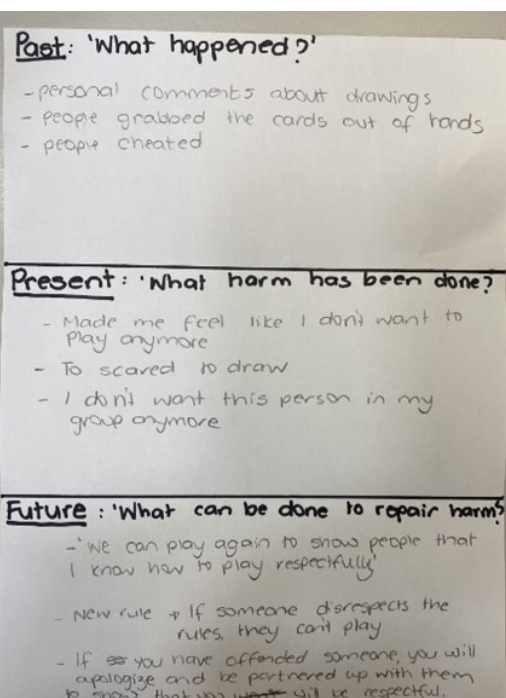 Past: 'What happened?'
- personal comments about drawings
- People grabbed the cards out of hands
- people cheated
Present: 'What harm has been done?
- Made me feel like I don't want to
play anymore
- To scared to draw
- I don't want this person in my
group anymore
Future: 'What can be done to repair harm?
- 'We can play again to show people that
I know how to play respectfully'
- New rule → If someone disrespects the
rules, they can't play
- If you have offended someone, you will
apologize and be partnered up with them
to show that you will be respectful.